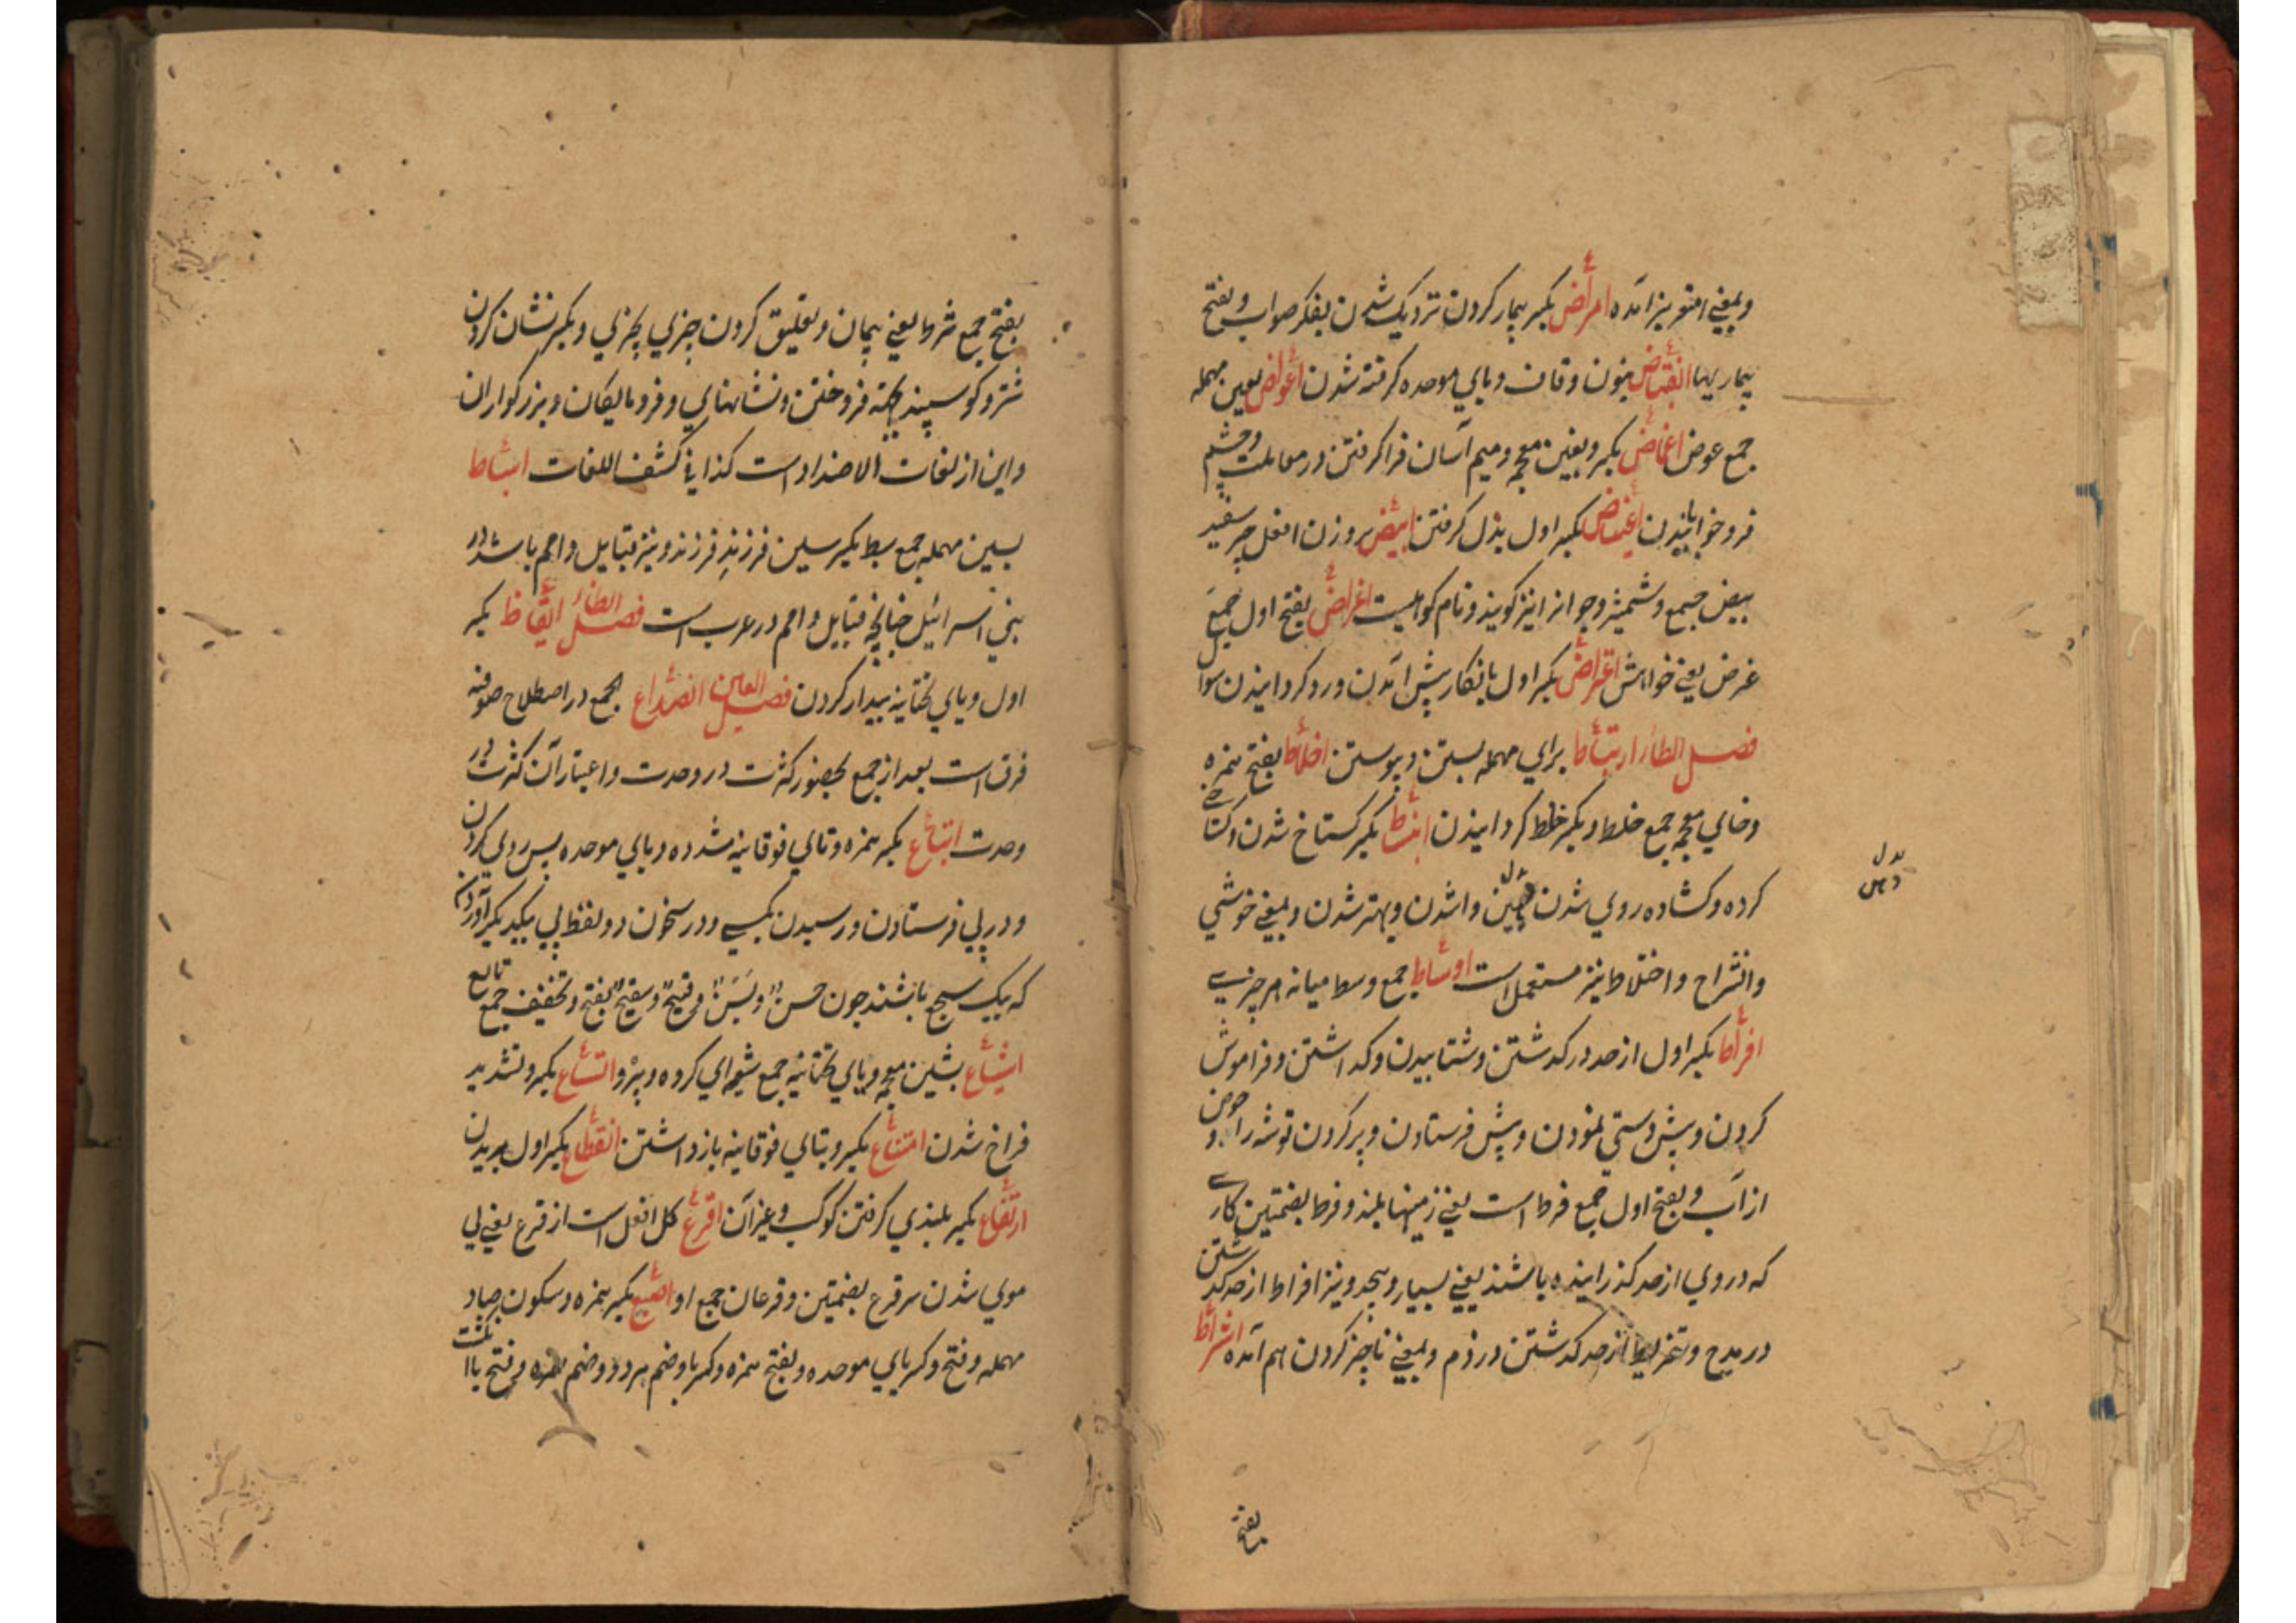 وبمعنی افتعر نیز آمده امراض بکسر بیمار کردن نزدیک شدن بفکر صواب و بفتح
بیماریها انقباض بنون وقاف وبای موحده گرفته شدن اعواض بعین مهمله
جمع عوض اغماض بکسر وبغین معجمه ومیم آسان فرا کرفتن در معاملت وچشم
فرو خوابانیدن اعتیاض بکسر اول بدل کرفتن ابیض بر وزن افعل چیز سفید
بیض جمع وشمشیر وجوانرا نیز کویند ونام کوهیست اغراض بفتح اول جمع
غرض یعنی خواهش اعتراض بکسر اول بانکار پیش آمدن ورد کردانیدن سوال
فصل الطاء ارتباط برای مهمله بستن وپیوستن اخلاط بفتح همزه
وخای معجمه جمع خلط وبکسر خلط کردانیدن انبساط بکسر کستاخ شدن و
کرده وکشاده روی شدن واشدن وبهتر شدن وبمعنی خوشی
وانشراح واختلاط نیز مستعمل است اوساط جمع وسط میانه هر چیزی
افراط بکسر اول از حد در کذشتن وشتابیدن وکذاشتن وفراموش
کردن وپیش دستی نمودن وپیش فرستادن وپر کردن توشه را وحوض
از آب وبفتح اول جمع فرط است یعنی زمینها بلند وفرط بضمتین کاری
که در وی از حد کذرانیده باشند یعنی بسیار وبیحد ونیز افراط از حد کذشتن
در مدح وتفریط از حد کذشتن در ذم وبمعنی ناچیز کردن هم آمده اشراط
بفتح
بفتح جمع شرط یعنی پیمان وتعلیق کردن چیزی بچیزی وبکسر نشان کردن
شتر وکوسپند بجهته فروختن ونشانهای وفرومایکان وبزرکواران
واین از لغات الاضداد است کذا فی کشف اللغات اسباط
بسین مهمله جمع سبط بکسر سین فرزند فرزند ونیز قبایل واحم باشد در
بنی اسرائیل چنانچه قبایل واحم در عرب است فصل الظاء ایقاظ بکسر
اول ویای تحتانیه بیدار کردن فصل العین انصداع الجمع در اصطلاح صوفیه
فرق است بعد از جمع بحضور کثرت در وحدت واعتبار آن کثرت در
وحدت اتباع بکسر همزه وتای فوقانیه مشدده وبای موحده پس روی کردن
ودر پی فرستادن ورسیدن بکسی ودر سخن دو لفظ پی یکدیکر آوردن
که بیک سجع باشند چون حسن وبسن وقبیح وشقیح وبفتح وتخفیف جمع تابع
اشیاع بشین معجمه ویای تحتانیه جمع شیعه ای کروه وپیرو اتساع بکسر وتشدید
فراخ شدن امتناع بکسر وبتای فوقانیه باز داشتن انقطاع بکسر اول بریدن
ارتفاع بکسر بلندی کرفتن کوکب وغیر آن اقرع کل افعل است از قرع یعنی بی
موی شدن سر قرع بضمتین وقرعان جمع او اصبع بکسر همزه وسکون صاد
مهمله وفتح وکسر بای موحده وبفتح همزه وکسر با وضم هر دو وضم همزه وفتح با انکشت